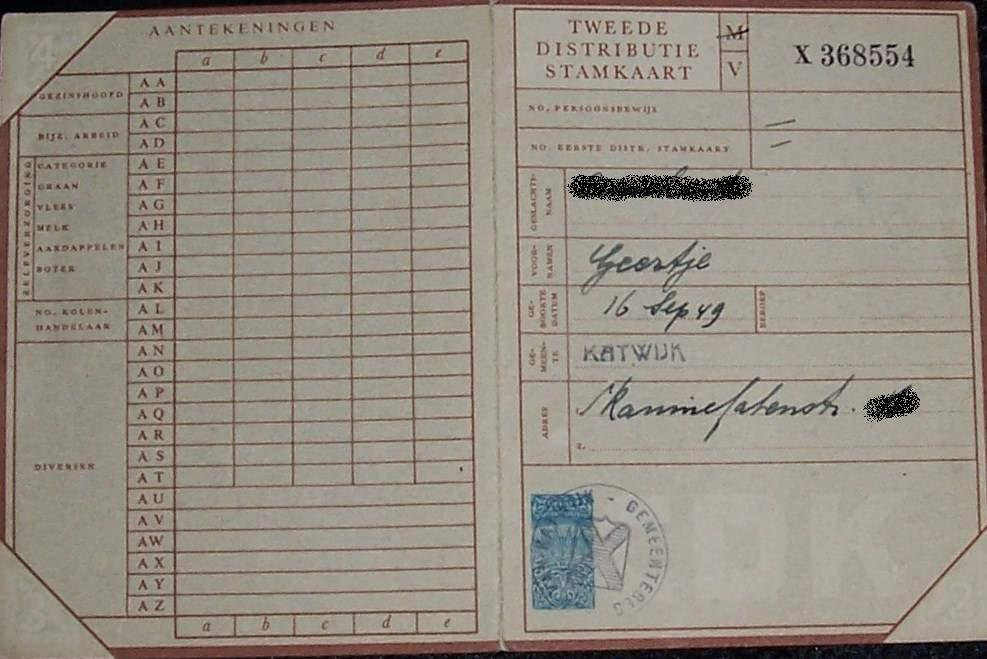 AANTEKENINGEN
a b c d e
GEZINSHOOFD
AA
AB
BIJZ. ARBEID
AC
AD
ZELFVERZORGING
CATEGORIE
GRAAN
VLEES
MELK
AARDAPPELEN
BOTER
AE
AF
AG
AH
AI
AJ
AK
NO. KOLEN-
HANDELAAR
AL
AM
DIVERSEN
AN
AO
AP
AQ
AR
AS
AT
AU
AV
AW
AX
AY
AZ
a b c d e
TWEEDE
DISTRIBUTIE
STAMKAART
M
V
X 368554
NO. PERSOONSBEWIJS
NO. EERSTE DISTR. STAMKAART
GESLACHTS-
NAAM
VOOR-
NAMEN
Geertje
GE-
BOORTE
DATUM
16 Sep 49
BEROEP
GE-
MEEN-
TE
KATWIJK
ADRES
2.
GEMEENTEBES
4
3
2